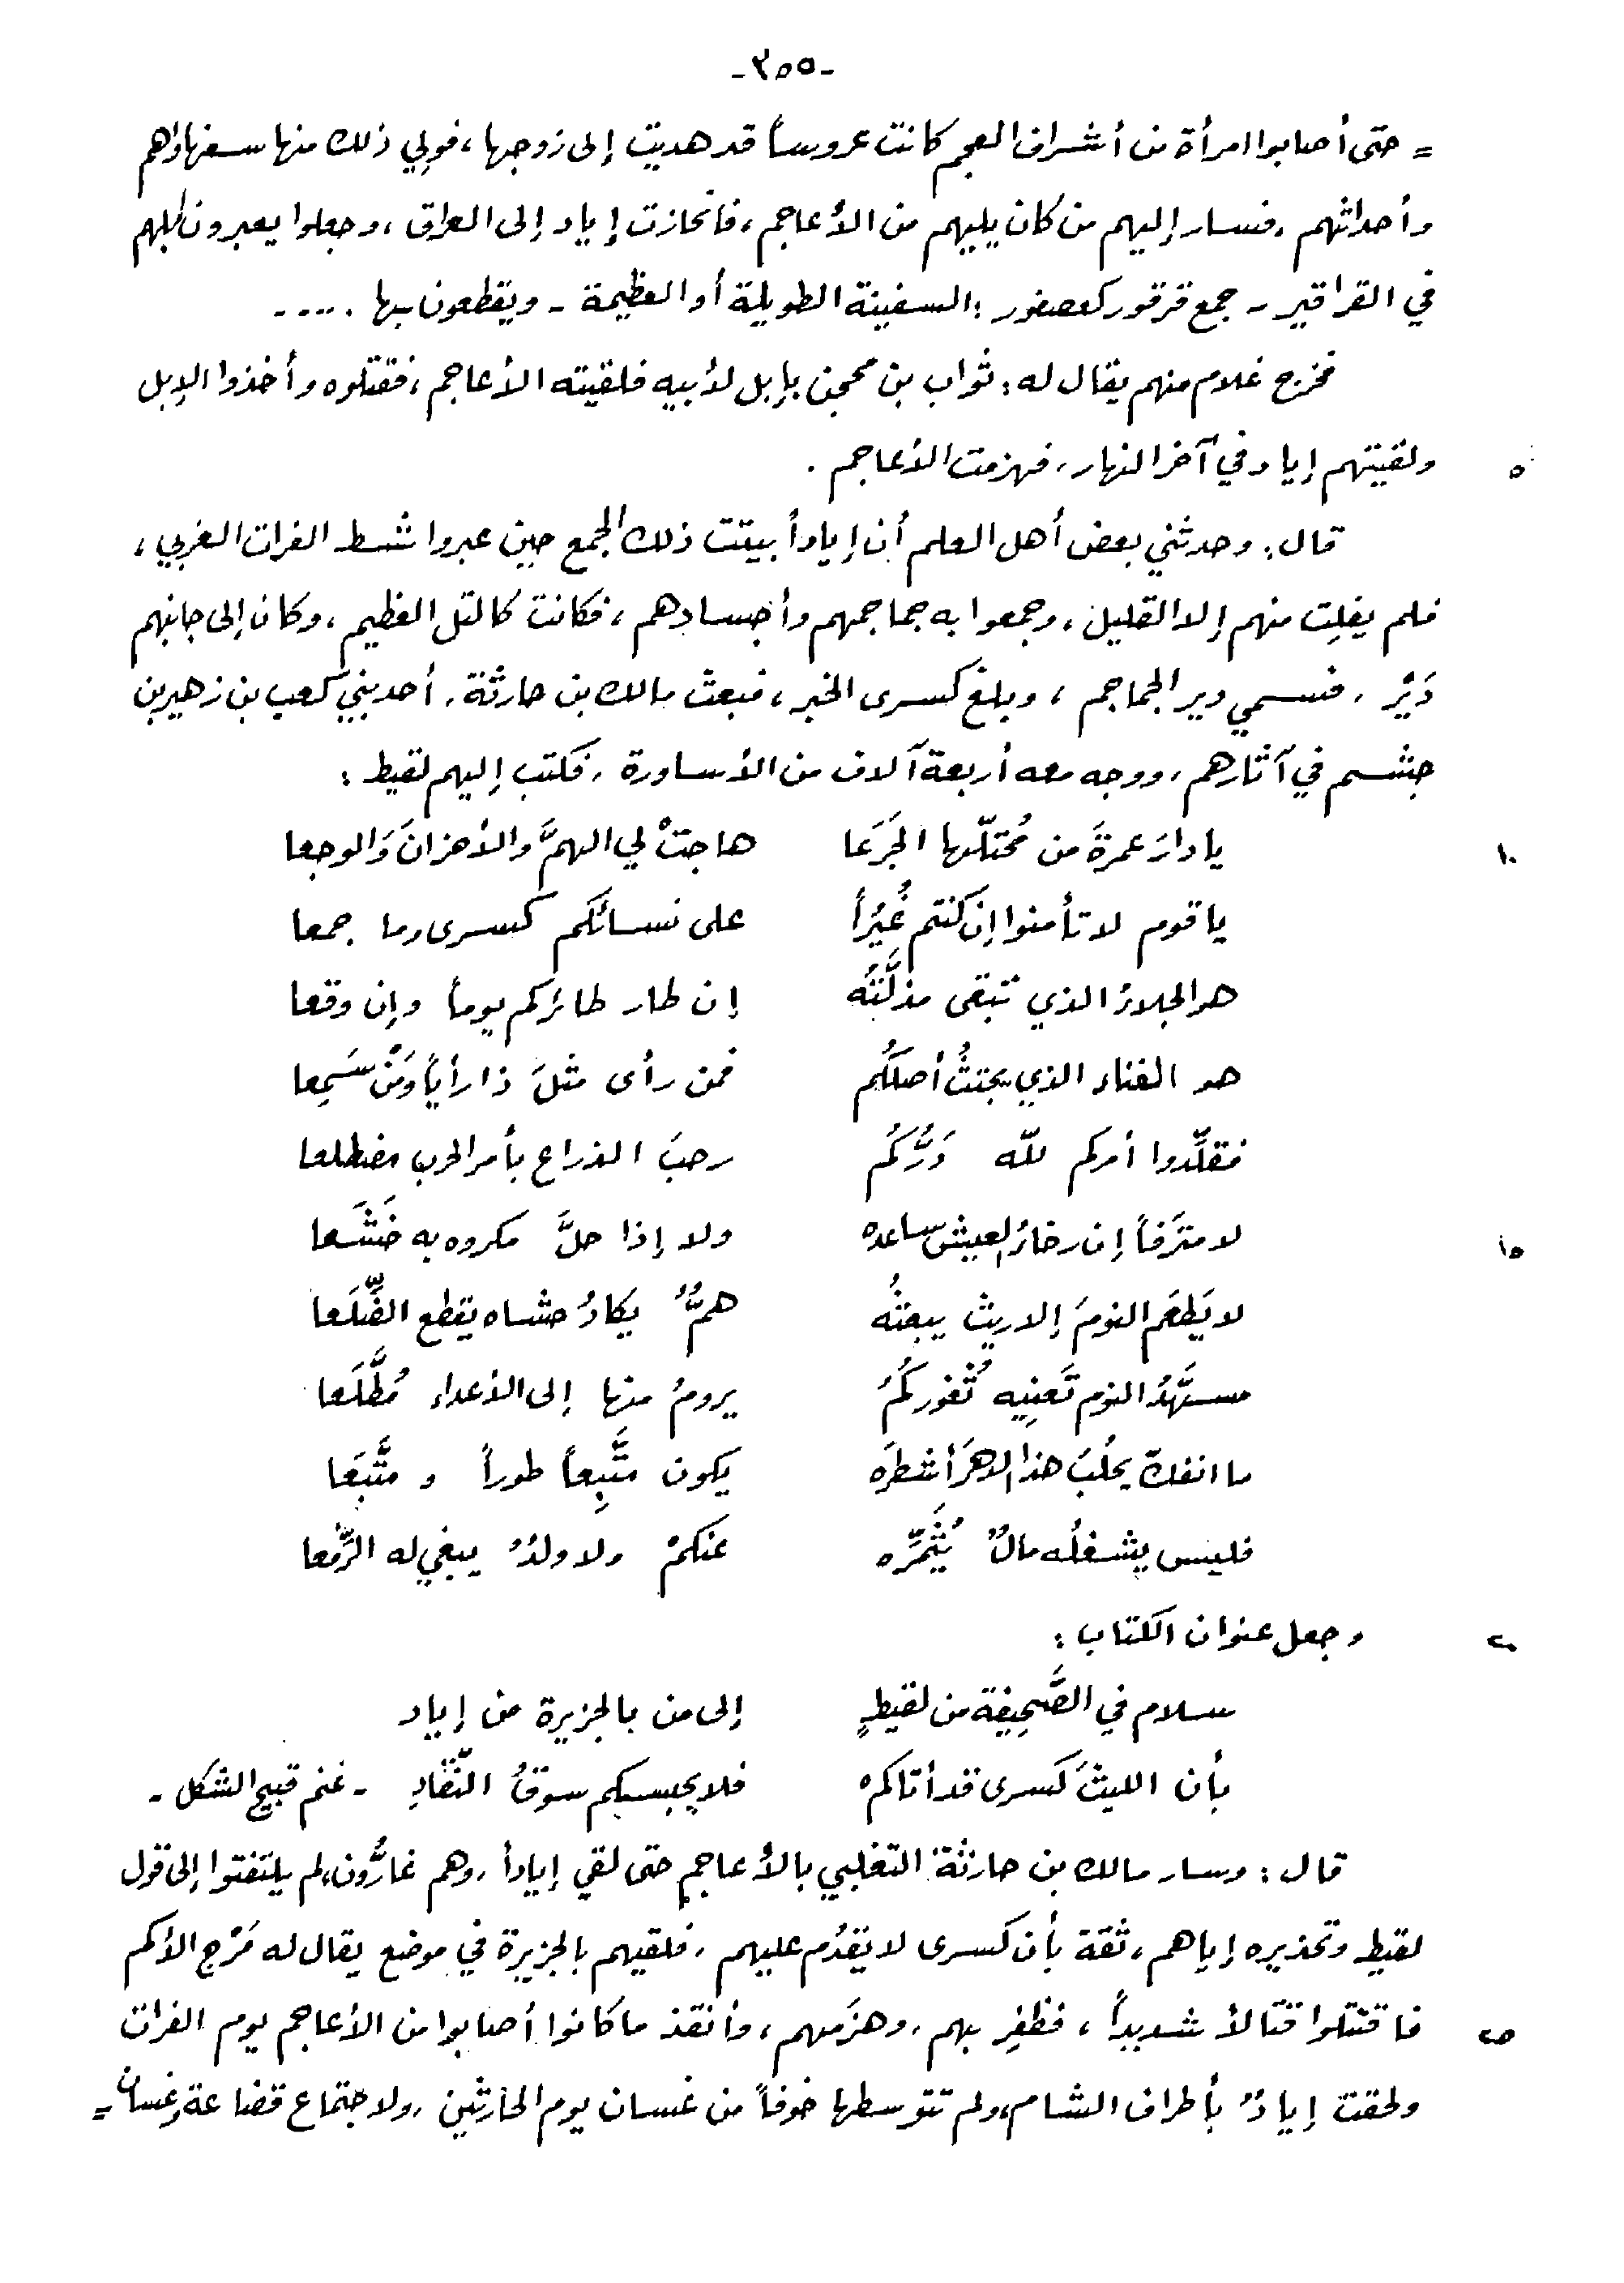 -٣٥٥-
= حتى أصابوا امرأة من أشراف العجم كانت عروساً قد هديت إلى زوجها، فولي ذلك منها سفهاؤهم
وأحداثهم، فسار إليهم من كان يليهم من الأعاجم، فانحازت إياد إلى العراق، وجعلوا يعبرون إبلهم
في القراقير - جمع قرقور كعصفور: السفينة الطويلة أو العظيمة - ويقطعون بها .....
فخرج غلام منهم يقال له: ثواب بن محجن بإبل لأبيه فلقيته الأعاجم، فقتلوه وأخذوا الإبل
ولقيتهم إياد في آخر النهار، فهزمت الأعاجم. ٥
قال: وحدثني بعض أهل العلم أن إياداً بيتت ذلك الجمع حين عبروا شط الفرات الغربي،
فلم يفلت منهم إلا القليل، وجمعوا به جماجمهم وأجسادهم، فكانت كالتل العظيم، وكان إلى جانبهم
دَيْر، فسمي دير الجماجم، وبلغ كسرى الخبر، فبعث مالك بن حارثة، أحد بني كعب بن زهير بن
جشم في آثارهم، ووجه معه أربعة آلاف من الأساورة، فكتب إليهم لقيط:
يا دارَ عمرةَ من مُحتلّها الجَرَعَا هاجتْ لي الهمَّ والأحزانَ وَالوجعا ١٠
يا قوم لا تأمنوا إن كنتم غُيُراً على نسائكم كسرى وما جمعا
هو الجلاءُ الذي تبقى مذلَّتُه إن طار طائركم يوماً وإن وقعا
هو الفناء الذي يجتثُّ أصلَكُم فمن رأى مثلَ ذا رأياً وَمَنْ سَمِعا
فقلِّدوا أمركم للّه دَرُّكُم رحبَ الذراع بأمر الحرب مضطلعا
لا مترَفاً إن رخاءُ العيش ساعده ولا إذا حلَّ مكروه به خَشَعا ١٥
لا يَطعَم النومَ إلا ريث يبعثُه همٌّ يكادُ حشاه يقطع الضِّلَعا
مسهَّدُ النوم تَعنِيه ثُغوركُمُ يرومُ منها إلى الأعداء مُطَّلَعا
ما انفكّ يحلُبَ هذا الدهرَ أشطرَه يكون متَّبِعاً طوراً و متَّبَعا
فليس يشغلُه مالٌ يُثَمِّره عنكمْ ولا ولدٌ يبغي له الرُّفعا
وجعل عنوان الكتاب: ٢٠
سلام في الصَّحِيفة من لقيطٍ إلى من بالجزيرة من إياد
بأن الليثَ كسرى قد أتاكم فلا يحبسكم سوقُ النّقادِ - غنم قبيح الشكل -
قال: وسار مالك بن حارثة التغلبي بالأعاجم حتى لقي إياداً، وهم غارُّون، لم يلتفتوا إلى قول
لقيط وتحذيره إياهم، ثقة بأن كسرى لا يقدُم عليهم، فلقيهم بالجزيرة في موضع يقال له مَرْج الأكم
فاقتتلوا قتالاً شديداً، فظفِر بهم، وهزَمهم، وأنقذ ما كانوا أصابوا من الأعاجم يوم الفرات ٢٥
ولحقت إيادُ بأطراف الشام، ولم تتوسطها خوفاً من غسان يوم الحارثين، ولاجتماع قضاعة وغسان =